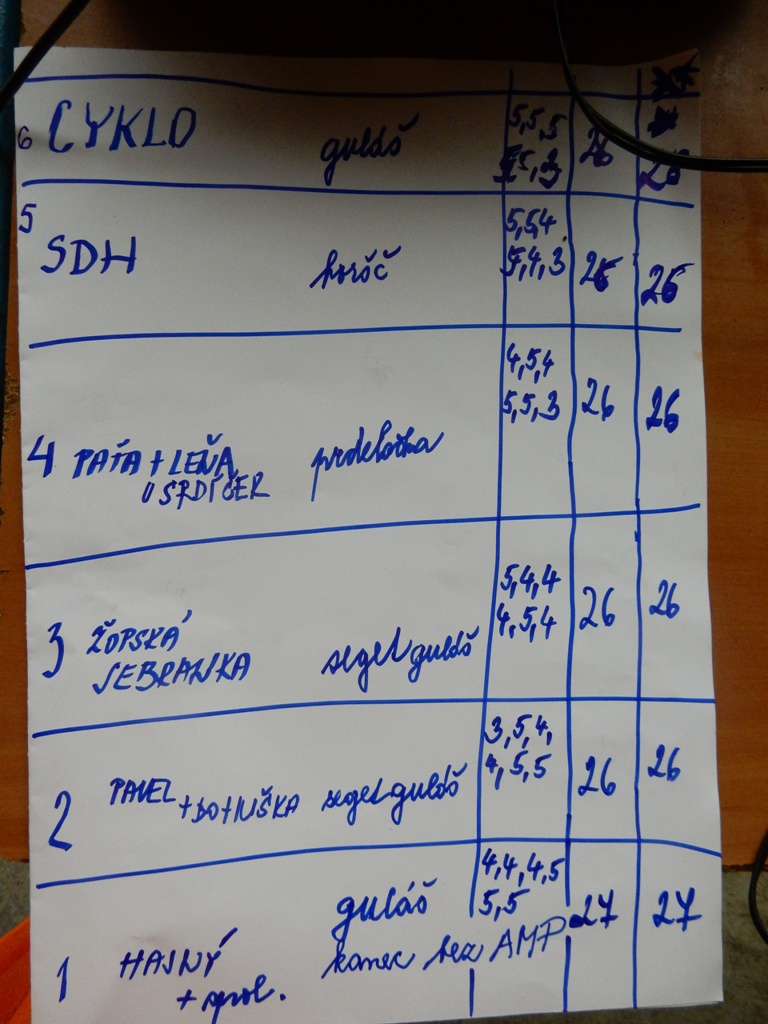 6 CYKLO guláš 5,5,5 26
5,3 26
5 SDH boršč 5,5,4
5,4,3 26 26
4,5,4
5,5,3 26 26
4 PAŤA + LEŇA prdelačka
U SRDÍČER
5,4,4
4,5,4 26 26
3 ŽOPSKÁ
SEBRANKA seget guláš
3,5,4,
4,5,5 26 26
2 PAVEL + seget guláš
4,4,4,5
guláš 5,5 27 27
1 HAJNÝ kanec bez AMP
+ spol.